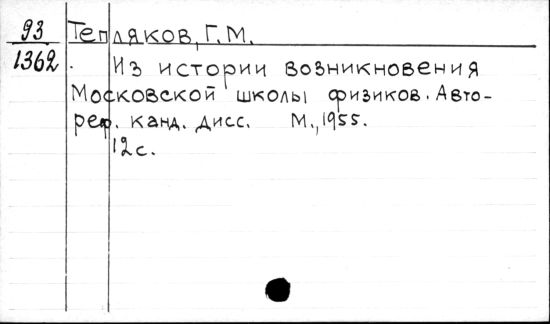 93 Тепляков, Г.М.
1362 Из истории возникновения
Московской школы физиков. Авто-
реф. канд. дисс. М., 1955.
12с.